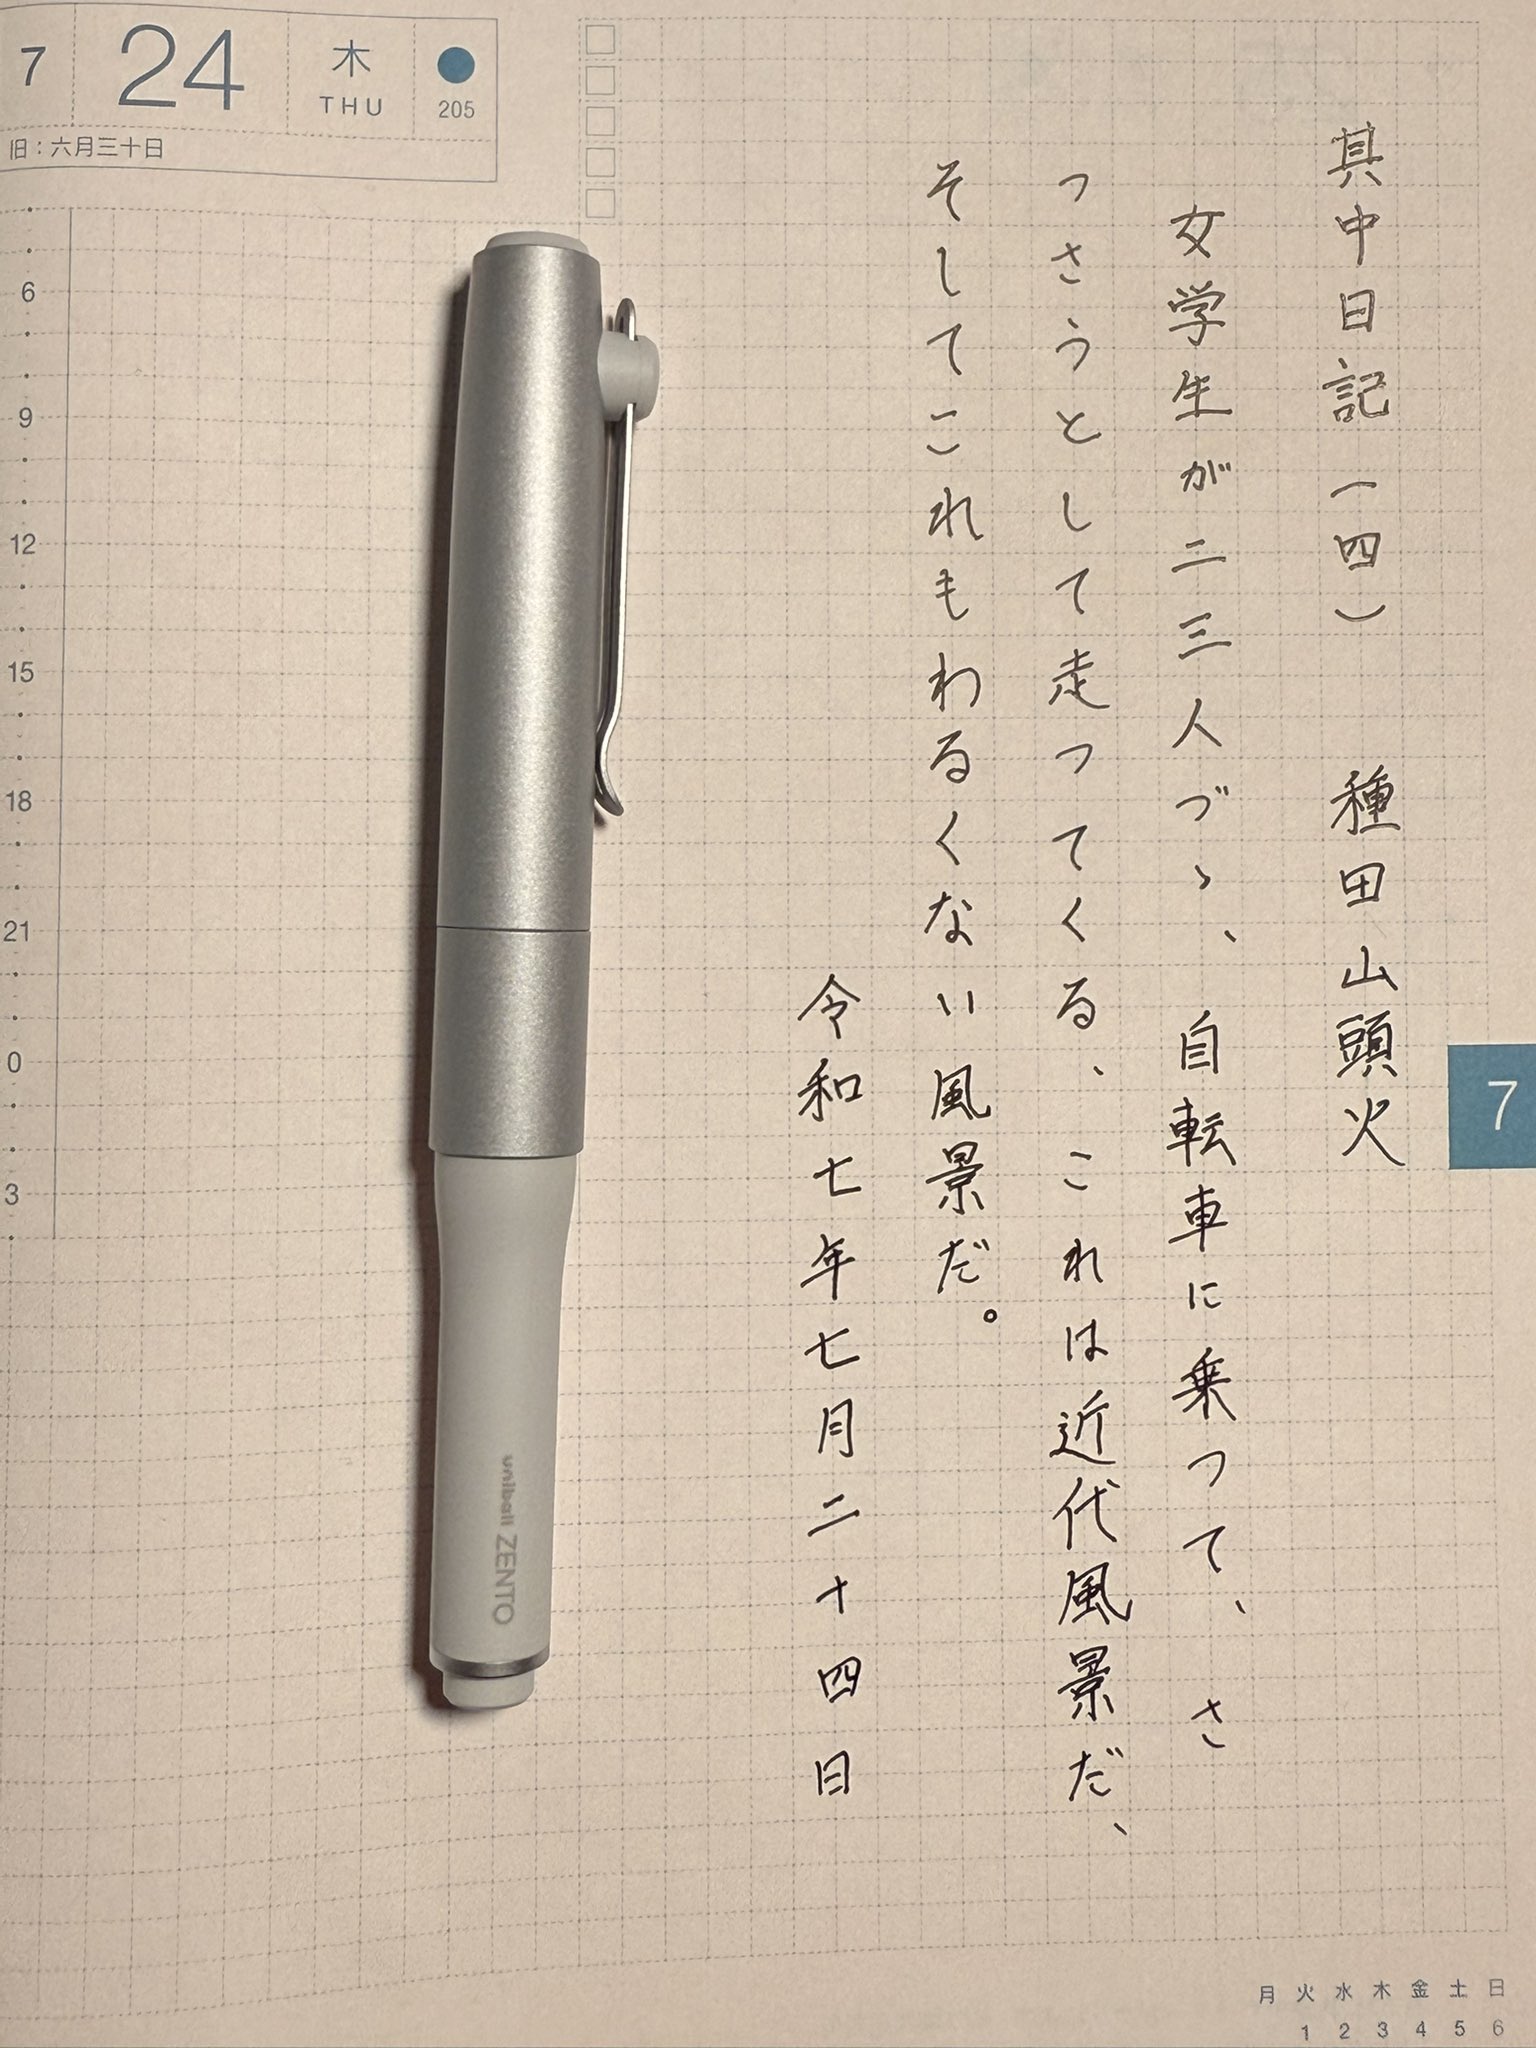 7
24
木
THU
205
旧：六月三十日
其中日記（一四）　種田山頭火
女学生が二三人づゝ、自転車に乗つて、さ
つさうとして走つてくる、これは近代風景だ、
そしてこれもわるくない風景だ。
令和七年七月二十四日
6
9
12
15
18
21
0
3
uniball ZENTO
7
月 火 水 木 金 土 日
1 2 3 4 5 6